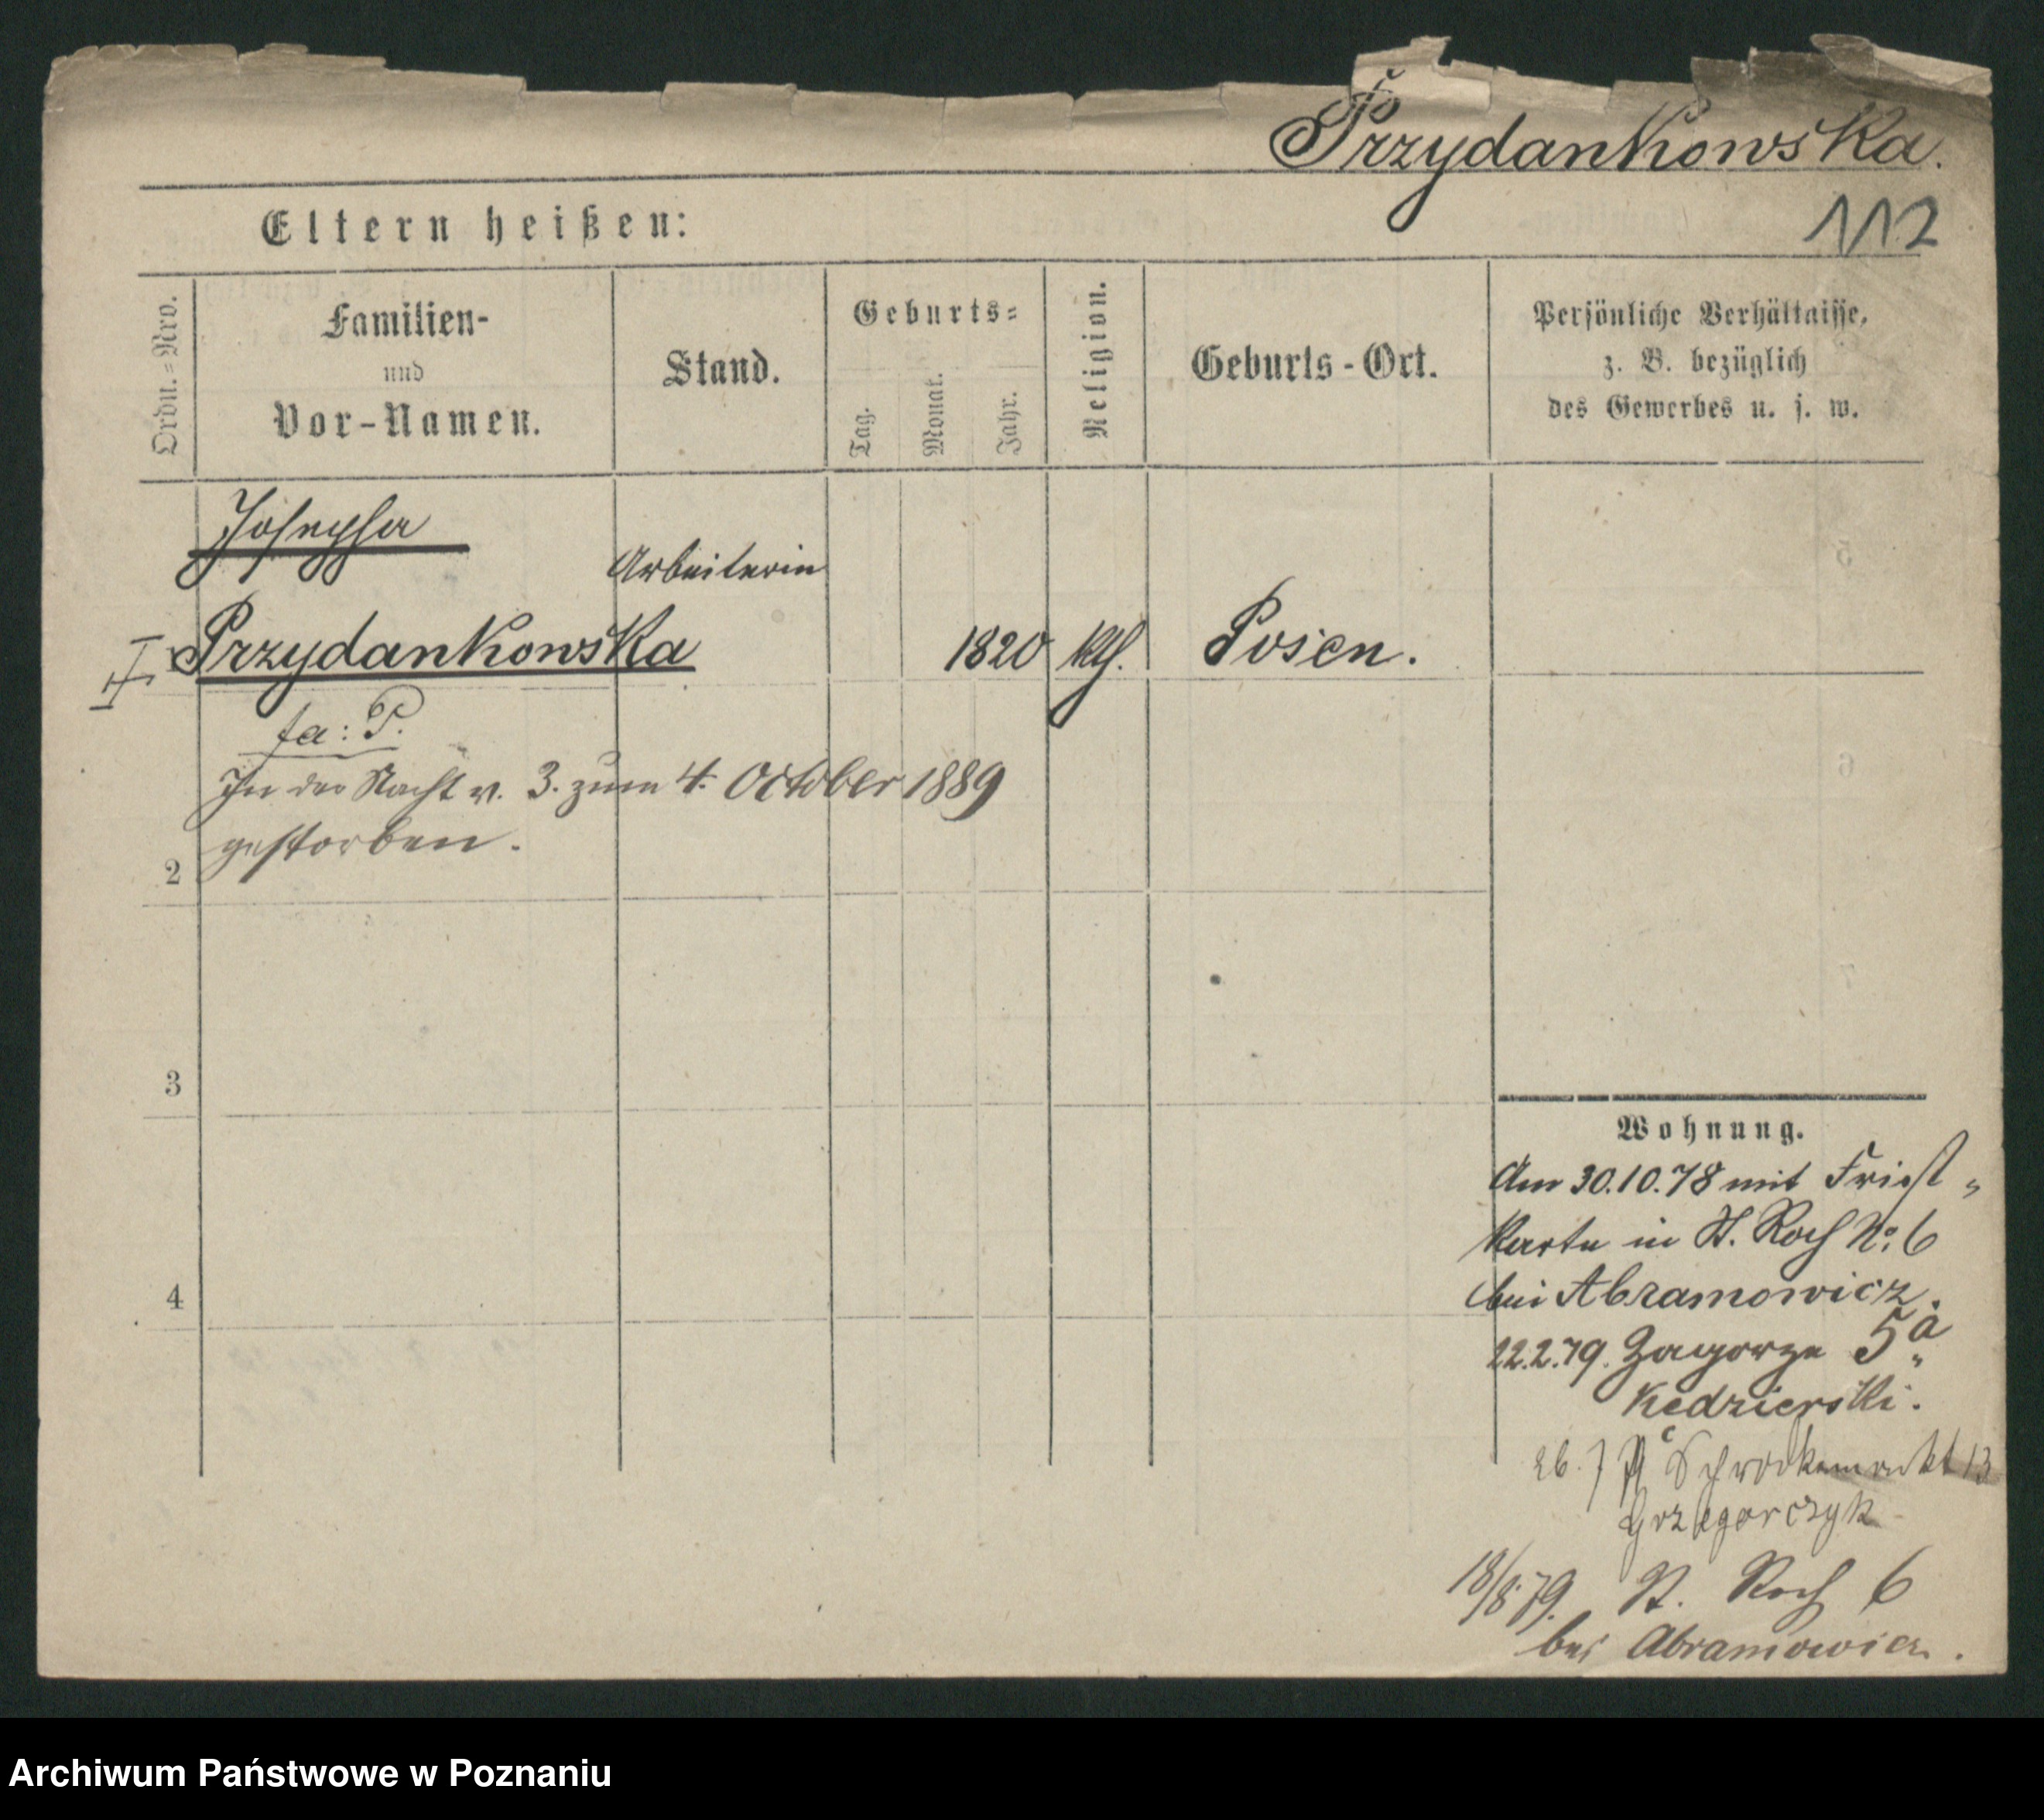 Przydankowska.
112
Eltern heißen:
Ordn.=Nro.
Familien-
und
Vor-Namen.
Stand.
Geburts=
Tag.
Monat.
Jahr.
Religion.
Geburts-Ort.
Persönliche Verhältnisse,
z. B. bezüglich
des Gewerbes u. s. w.
Josepha
Arbeiterin
Przydankowska
1820 kth. Posen.
fa: P.
In der Nacht v. 3. zum 4. October 1889
gestorben.
2
3
4
Wohnung.
Am 30.10.78 mit Frist-
karte in St. Roch No. 6
bei Abramowicz.
22.2.79. Zagorze 5a
Kedzierski.
26. 79 Schrodkamarkt 13
Grzegorczyk
18/8.79. St. Roch 6
bei Abramowicz.
Archiwum Państwowe w Poznaniu